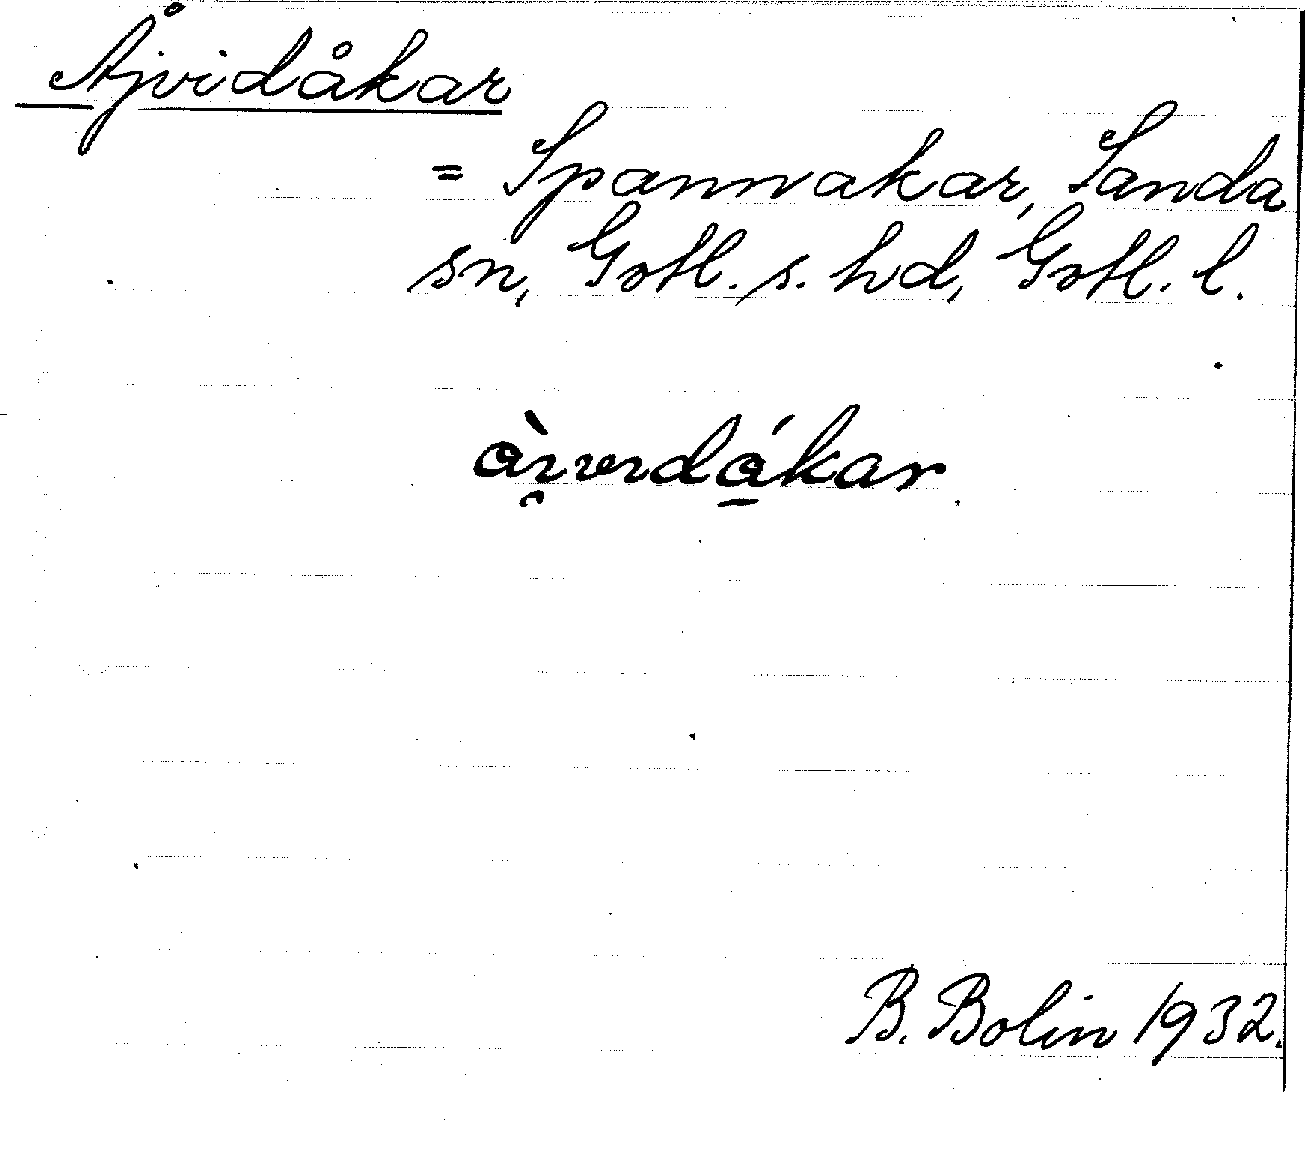 Åjvidåkar
= Spannakar, Sanda
sn, Gotl. s. hd, Gotl. l.
B. Bolin 1932.